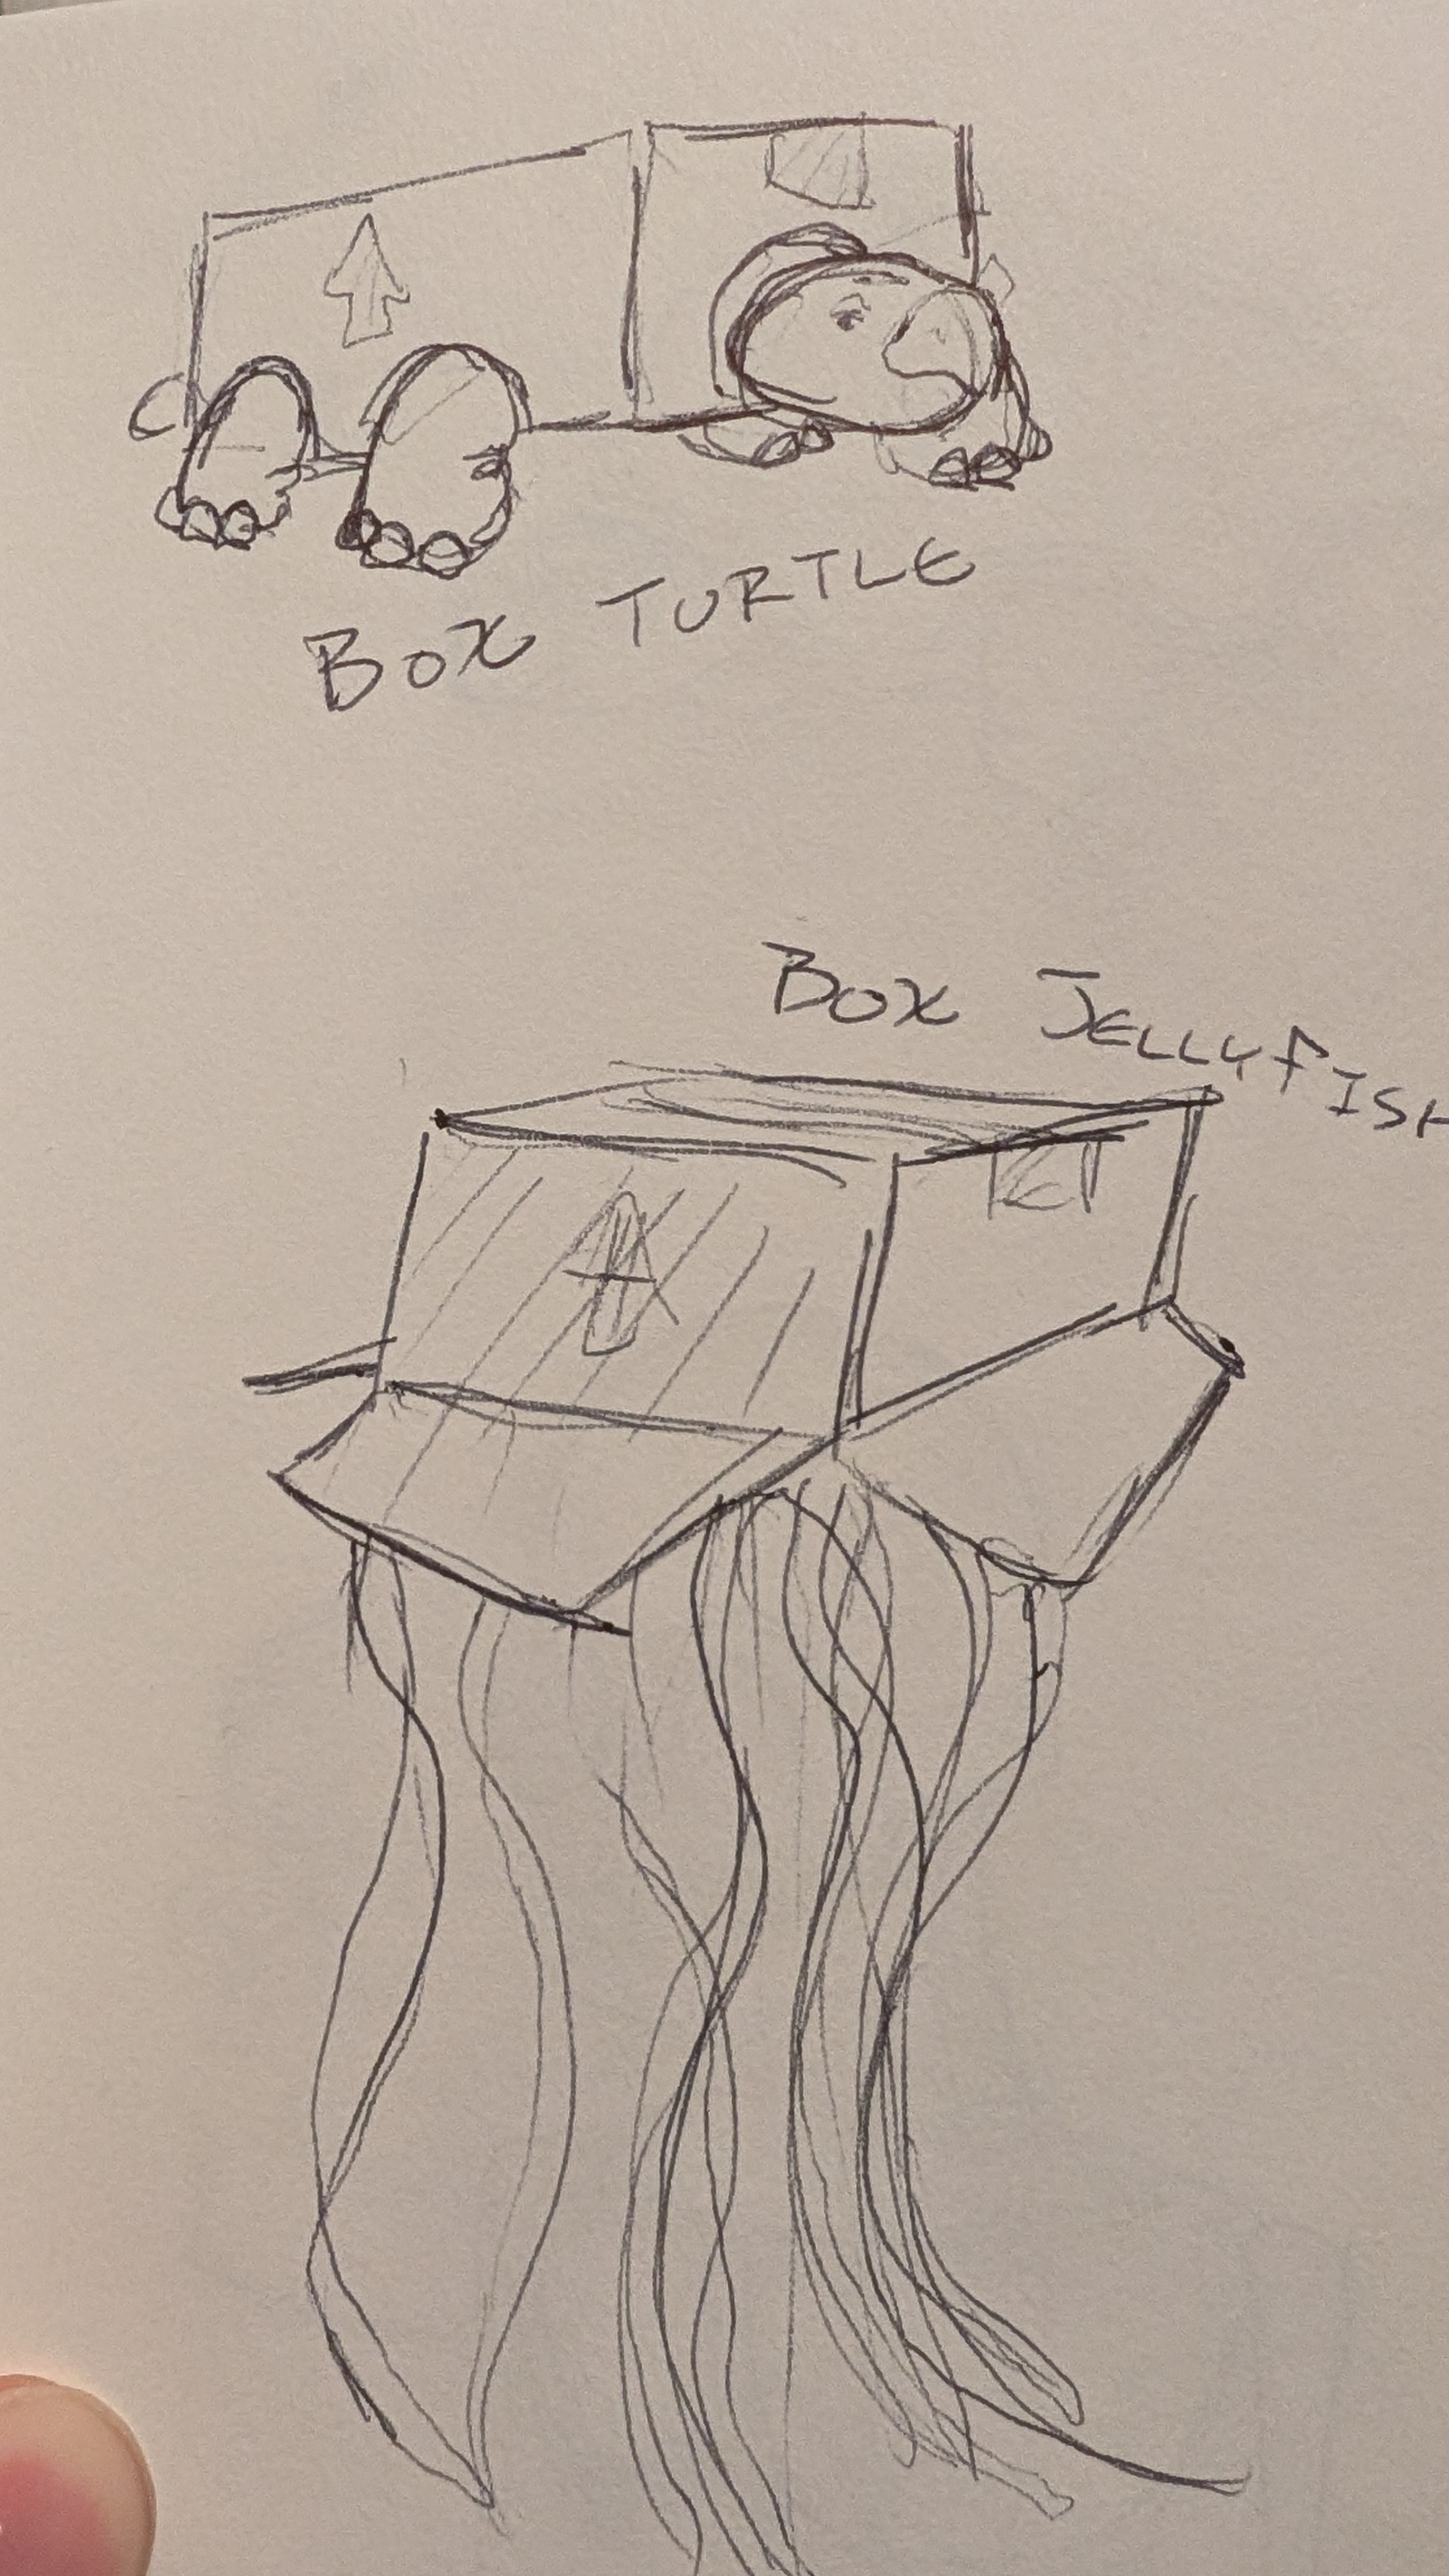 BOX TURTLE
BOX JELLYFISH